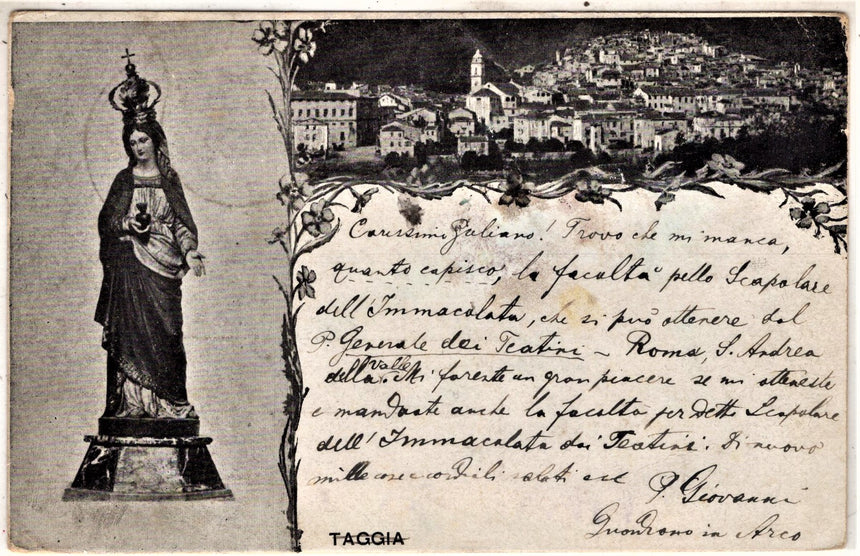 Carissimi Juliano! Trovo che mi manca,
quanto capisco, la facoltà pello Scapolare
dell'Immacolata, che si può ottenere dal
P. Generale dei Teatini – Roma, S. Andrea
della Valle. Mi fareste un gran piacere se mi otteneste
e mandaste anche la facoltà per detto Scapolare
dell'Immacolata dai Teatini. Di nuovo
mille cose e cordiali saluti
P. Giovanni
in Arco
TAGGIA